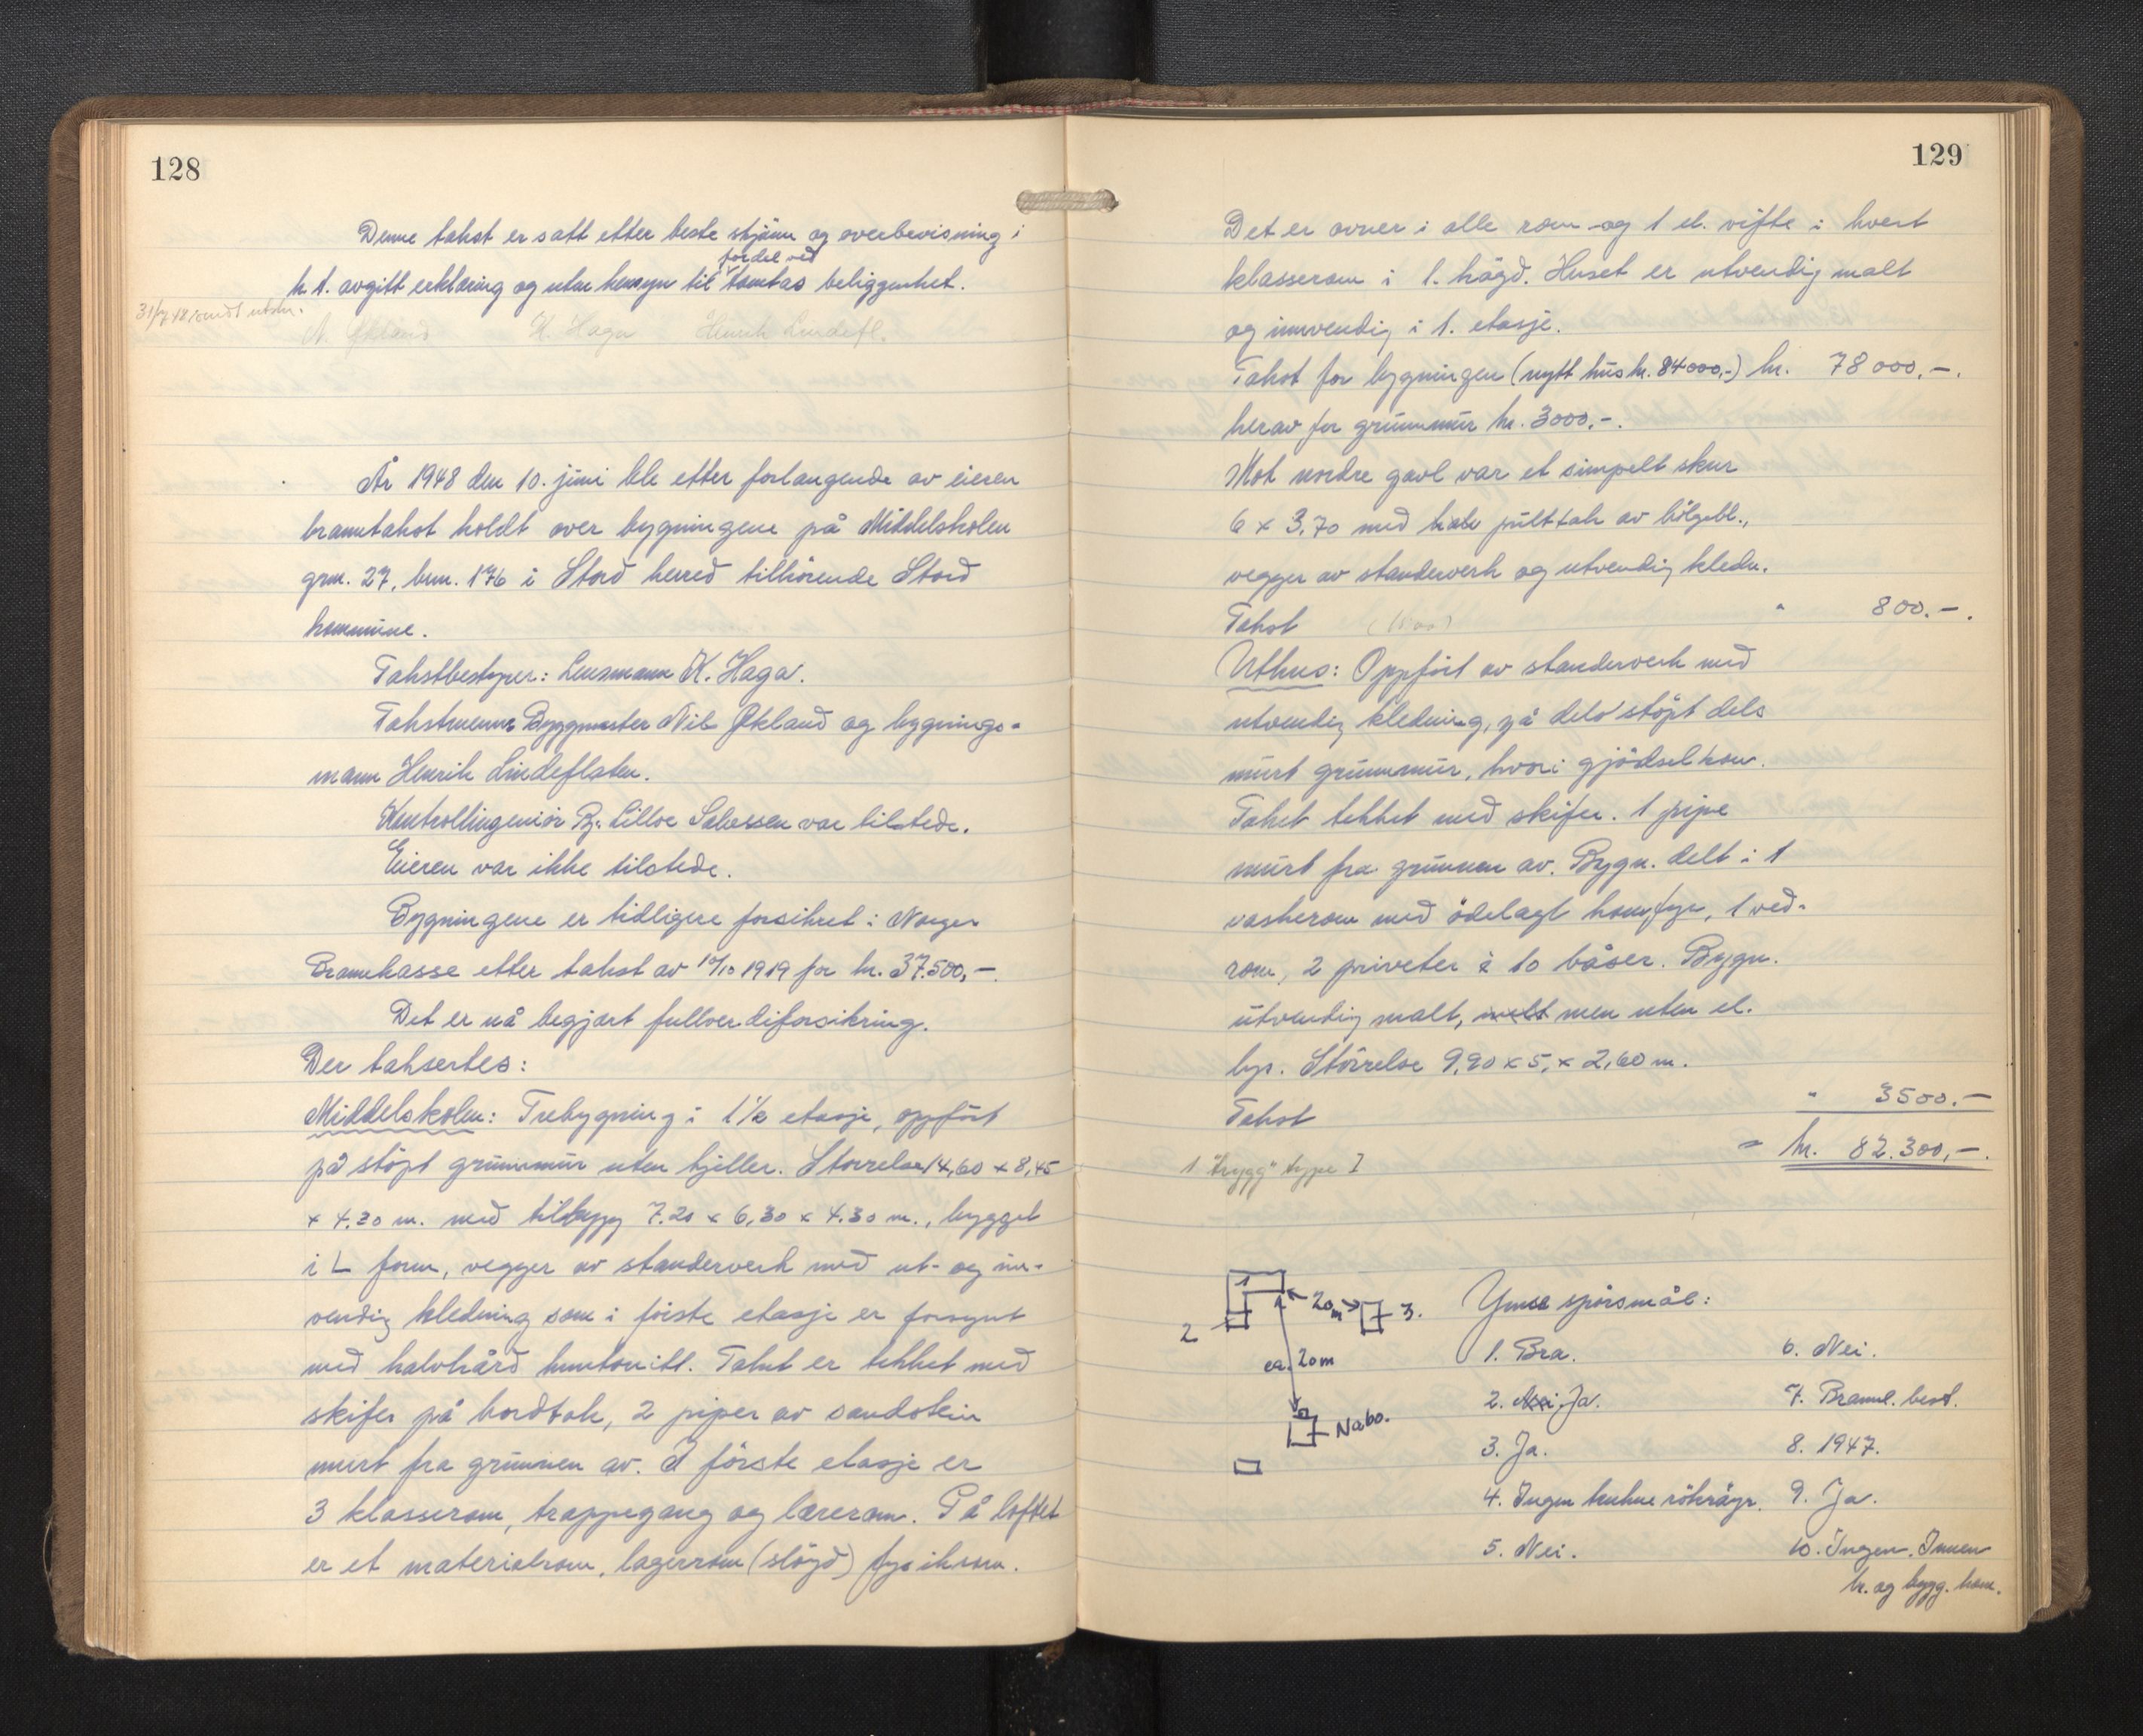 128
Denne takst er satt etter beste skjønn og overbevisning i
fordel ved
h. t. avgitt erklæring og uten hensyn til tomtas beliggenhet.
31/7 48 sendt utskr.
N. Økland K. Haga Henrik Lindefl.
År 1948 den 10. juni ble etter forlangende av eieren
branntakst holdt over bygningene på Middelskolen
grn. 27, brn. 176 i Stord herred tilhörende Stord
kommune.
Takstbestyrer: Lensmann K. Haga.
Takstmenn: Byggmester Nils Økland og bygnings-
mann Henrik Lindeflaten.
Kontrollingeniör Bj. Lilloe Salvesen var tilstede.
Eieren var ikke tilstede.
Bygningene er tidligere forsikret i Norges
Brannkasse etter takst av 1919 for kr. 37.500,-.
Det er nå begjært fullverdiforsikring.
Der taksertes:
Middelskolen: Trebygning i 1½ etasje, oppfört
på stöpt grunnmur uten kjeller. Störrelse 14,60 x 8,45
x 4.20 m. med tilbygg 7.20 x 6,30 x 4.30 m., bygget
i L form, vegger av standerverk med ut- og inn-
vendig kledning som i förste etasje er forsynt
med halvhård huntonitt. Taket er tekket med
skifer på bordtak, 2 piper av sandstein
murt fra grunnen av. I förste etasje er
3 klasserom, trappegang og lærerom. På loftet
er et materialrom, lagerrom (slöyd) fysikrom.
129
Det er ovner i alle rom og 1 el. vifte i hvert
klasserom i 1. högd. Huset er utvendig malt
og innvendig i 1. etasje.
Takst for bygningen (nytt hus kr. 84000,-) kr. 78 000,-.
herav for grunnmur kr. 3000,-.
Mot nordre gavl var et simpelt skur
6 x 3,70 med pulttak av bölgebl.,
vegger av standerverk og utvendig kledn.
Takst " 800.-.
Uthus: Oppfört av standerverk med
utvendig kledning, på dels stöpt dels
murt grunnmur, hvori gjödselrom.
Taket tekket med skifer. 1 pipe
murt fra grunnen av. Bygn. delt i 1
vaskerom med ödelagt komfyr, 1 ved-
rom, 2 priveter à 10 båser. Bygn.
utvendig malt, men uten el.
lys. Störrelse 9,20 x 5, x 2,60 m.
Takst " 3500.-
= kr. 82.300,-.
1 "trygg" type I
1
2
20 m
3.
ca. 20m
Nabo.
Ymse spörsmål:
1. Bra. 6. Nei.
2. Ja. 7. Brannl. best.
3. Ja. 8. 1947.
4. Ingen 9. Ja.
5. Nei. 10. Ingen. Innen
br. og bygg. kom.